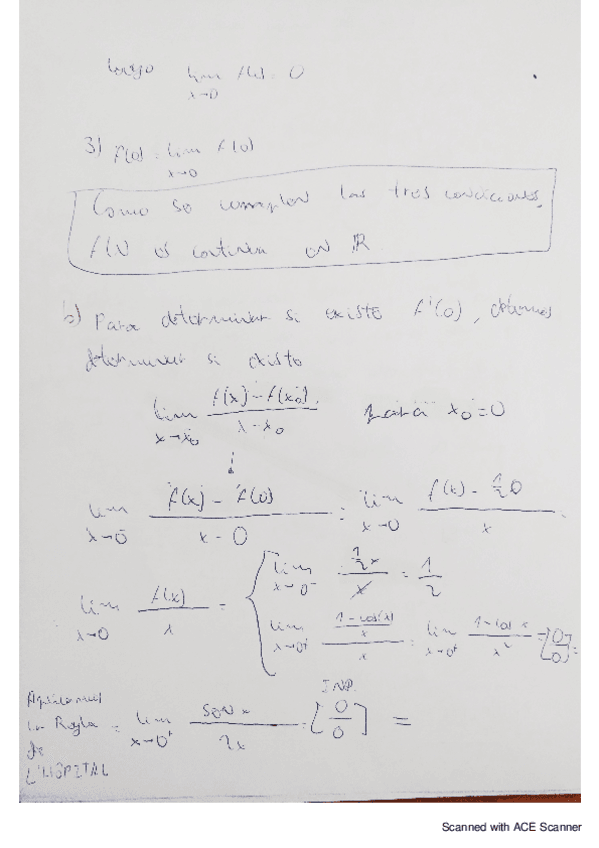 luego lim f(x) = 0
x→0
3) f(0) = lim f(0)
x→0
Como se cumplen las tres condiciones,
f(x) es continua en ℝ
b) Para determinar si existe f'(0), debemos
determinar si existe
lim f(x) - f(x₀) / x - x₀ para x₀ = 0
x→x₀
lim f(x) - f(0) / x - 0 = lim f(x) - 1/2 0 / x
x→0 x→0
lim f(x) / x = { lim 1/2 x / x = 1/2
x→0 x→0⁻
lim (1 - cos(x) / x) / x = lim 1 - cos x / x² = [0/0] =
x→0⁺ x→0⁺
Aplicamos
la Regla
de
L'HÔPITAL
= lim sen x / 2x = [0/0] =
x→0⁺
IND.
Scanned with ACE Scanner